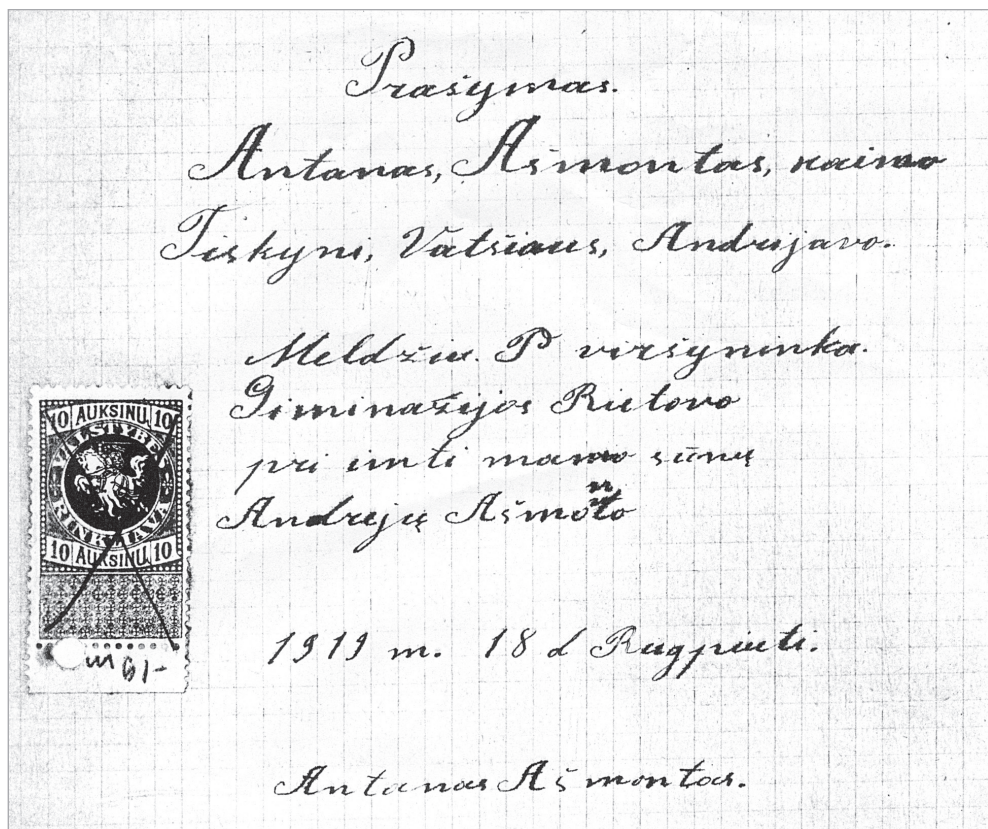 Prašymas.
Antanas, Ašmontas, kaimo
Tiskyni, Valsčiaus, Andrijavo.
Meldžiu. P viršyninka.
Giminažyjos Rietovo
pri imti mano sūnų
Andrejų Ašmonto
10 AUKSINŲ 10
VALSTYBĖS
RINKLIAVA
10 AUKSINŲ 10
1919 m. 18 d Rugpiuti.
Antanas Ašmontas.